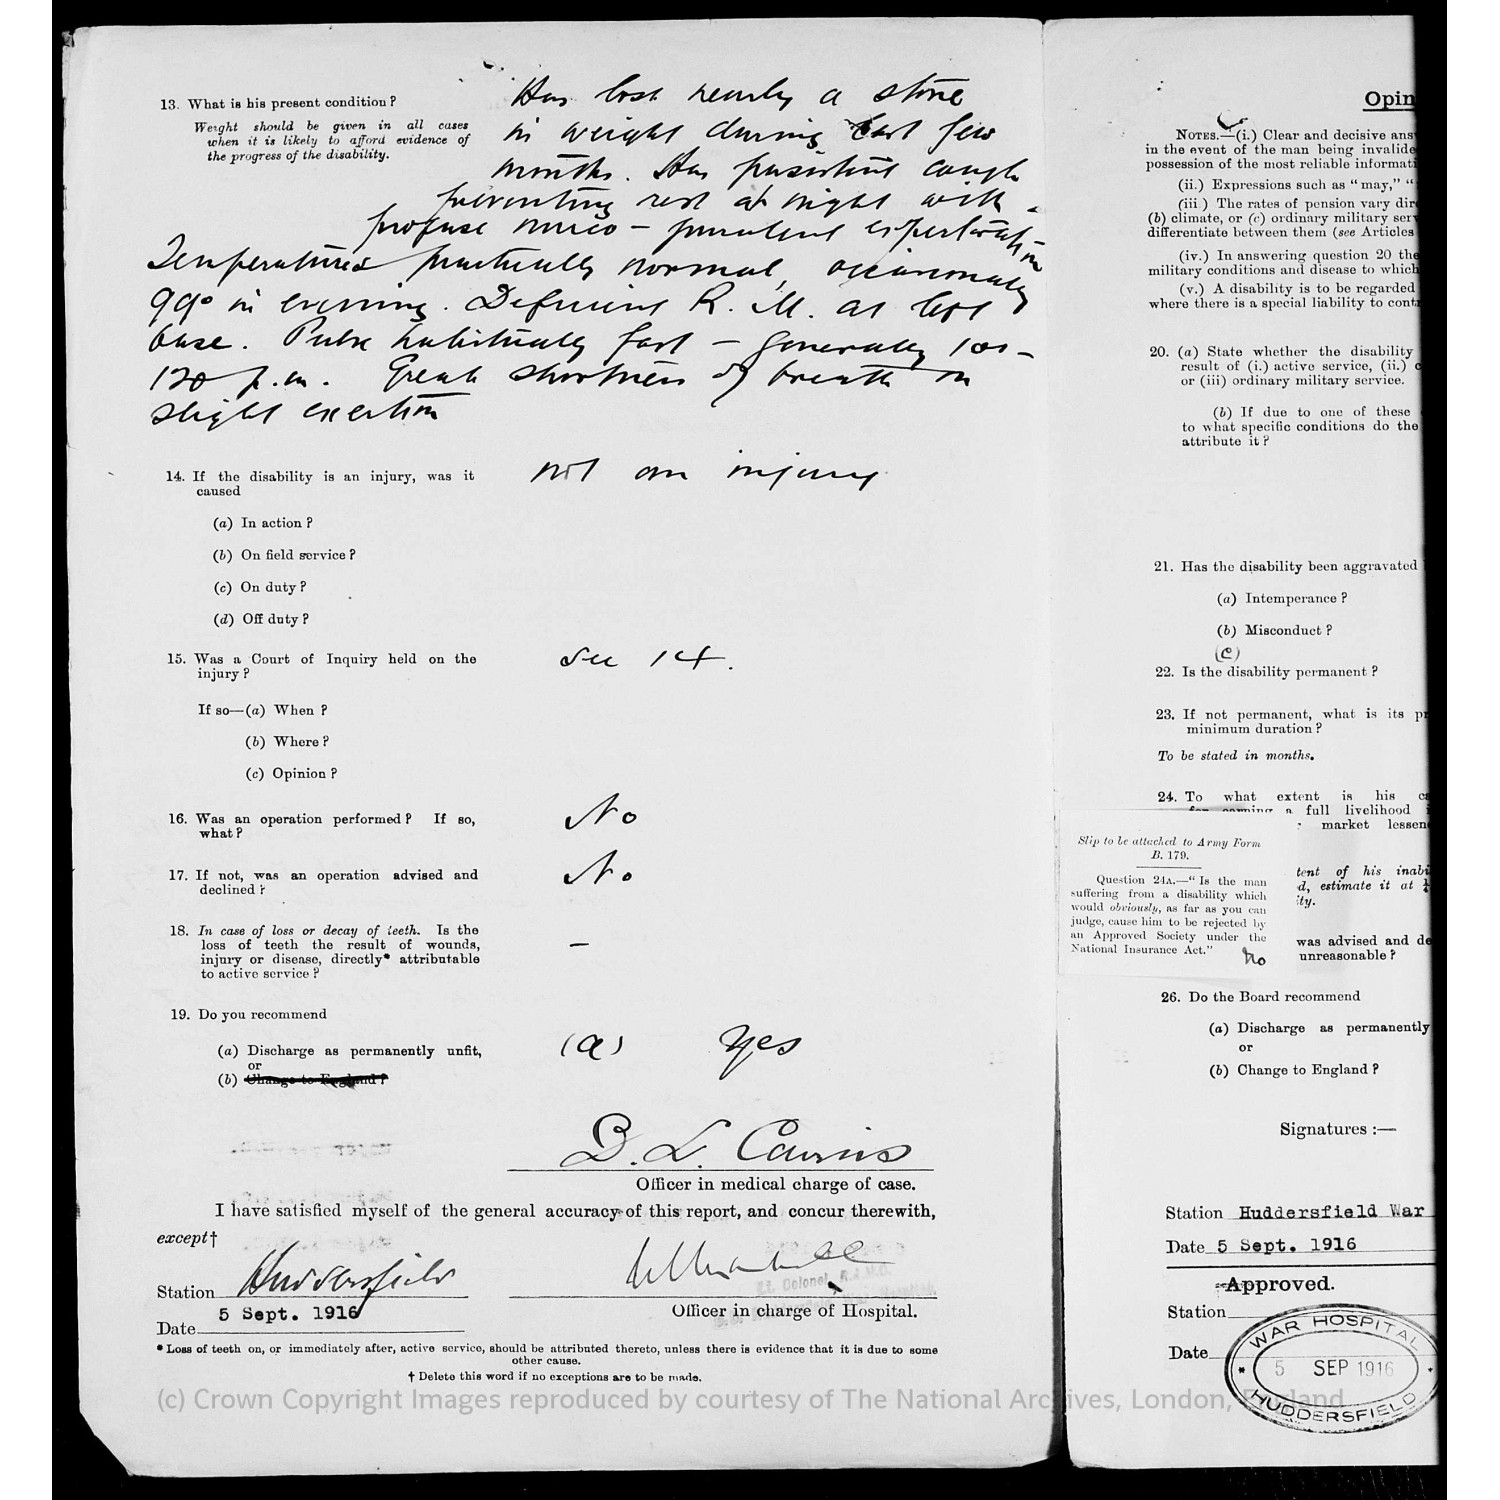 13. What is his present condition?
Weight should be given in all cases
when it is likely to afford evidence of
the progress of the disability.
Has lost nearly a stone
in weight during last few
months. Has persistent cough
preventing rest at night with
profuse muco - purulent expectoration
Temperatures practically normal, occasionally
99° in evening. Deficient R. M. at left
base. Pulse habitually fast - generally 100 -
120 p.m. Great shortness of breath on
slight exertion
14. If the disability is an injury, was it
caused
not an injury
(a) In action?
(b) On field service?
(c) On duty?
(d) Off duty?
15. Was a Court of Inquiry held on the
injury?
see 14.
If so—(a) When?
(b) Where?
(c) Opinion?
16. Was an operation performed? If so,
what?
No
17. If not, was an operation advised and
declined?
No
18. In case of loss or decay of teeth. Is the
loss of teeth the result of wounds,
injury or disease, directly* attributable
to active service?
–
19. Do you recommend
(a) Discharge as permanently unfit,
or
(b) Change to England?
(a) Yes
Officer in medical charge of case.
I have satisfied myself of the general accuracy of this report, and concur therewith,
except†
Station Huddersfield
Lt. Colonel, R.A.M.C.
Officer in charge of Hospital.
Date 5 Sept. 1916
* Loss of teeth on, or immediately after, active service, should be attributed thereto, unless there is evidence that it is due to some
other cause.
† Delete this word if no exceptions are to be made.
Opin
NOTES.—(i.) Clear and decisive ans
in the event of the man being invalide
possession of the most reliable informati
(ii.) Expressions such as "may," "
(iii.) The rates of pension vary dir
(b) climate, or (c) ordinary military ser
differentiate between them (see Articles
(iv.) In answering question 20 the
military conditions and disease to which
(v.) A disability is to be regarded
where there is a special liability to cont
20. (a) State whether the disability
result of (i.) active service, (ii.) c
or (iii) ordinary military service.
(b) If due to one of these
to what specific conditions do the
attribute it?
21. Has the disability been aggravated
(a) Intemperance?
(b) Misconduct?
(c)
22. Is the disability permanent?
23. If not permanent, what is its p
minimum duration?
To be stated in months.
24. To what extent is his c
for earning a full livelihood
market lessen
Slip to be attached to Army Form
B. 179.
Question 24A.—"Is the man
suffering from a disability which
would obviously, as far as you can
judge, cause him to be rejected by
an Approved Society under the
National Insurance Act."
No
tent of his inabi
d, estimate it at ¼
ity.
was advised and de
unreasonable?
26. Do the Board recommend
(a) Discharge as permanently
or
(b) Change to England?
Signatures:—
Station Huddersfield War
Date 5 Sept. 1916
Approved.
Station
Date
WAR HOSPITAL
5 SEP 1916
HUDDERSFIELD
(c) Crown Copyright Images reproduced by courtesy of The National Archives, London, England